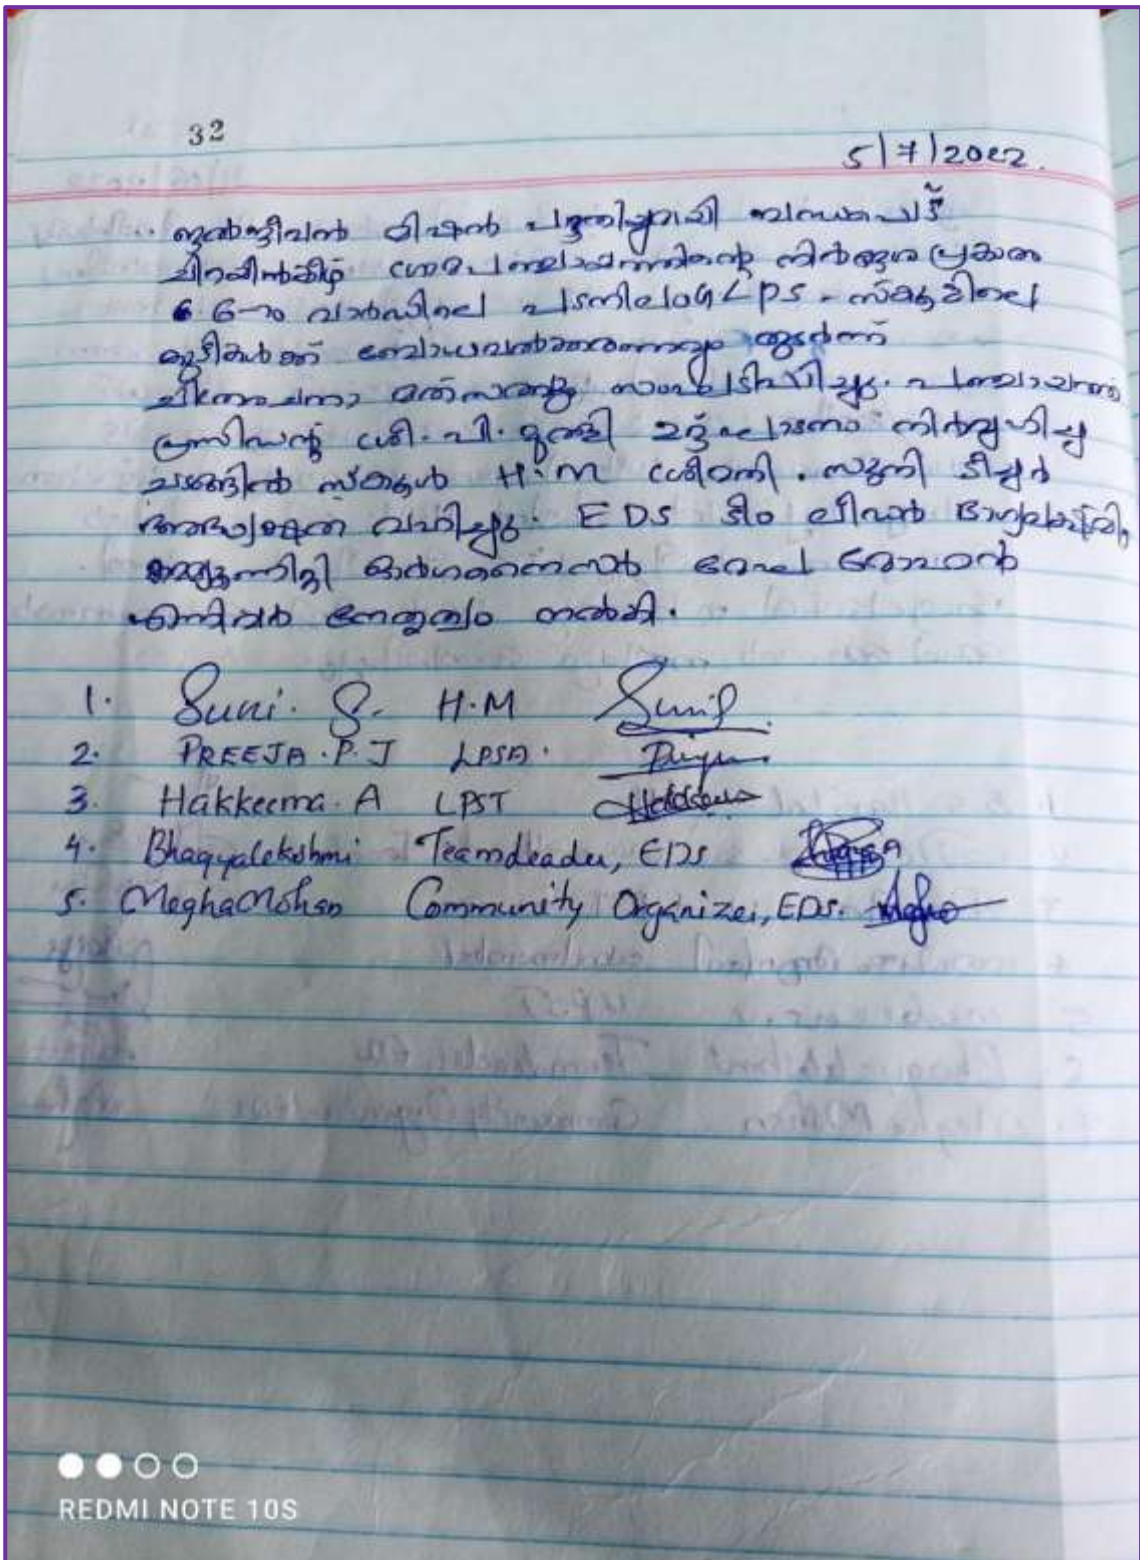 32
5/7/2022.
ജൽജീവൻ മിഷൻ പദ്ധതിയുമായി ബന്ധപ്പെട്ട്
ചിറയിൻകീഴ് ഗ്രാമപഞ്ചായത്തിന്റെ നിർദ്ദേശ പ്രകാരം
6-ാം വാർഡിലെ പടനിലം G L P S - സ്കൂളിലെ
കുട്ടികൾക്ക് ബോധവൽക്കരണവും തുടർന്ന്
ചിത്രരചനാ മത്സരങ്ങളും സംഘടിപ്പിച്ചു. പഞ്ചായത്ത്
പ്രസിഡന്റ് ശ്രീ. പി. മുരളി ഉദ്ഘാടനം നിർവ്വഹിച്ച
ചടങ്ങിൽ സ്കൂൾ H.M ശ്രീമതി. സുനി ടീച്ചർ
അദ്ധ്യക്ഷത വഹിച്ചു. EDS ടീം ലീഡർ ഭാഗ്യലക്ഷ്മി,
കമ്മ്യൂണിറ്റി ഓർഗനൈസർ മേഘ മോഹൻ
എന്നിവർ നേതൃത്വം നൽകി.
1. Suni. S. H.M
2. PREEJA.P.J LPSA.
3. Hakkeema. A LPST
4. Bhagyalekshmi Teamleader, EDS
5. Megha Mohan Community Organizer, EDS.
REDMI NOTE 10S